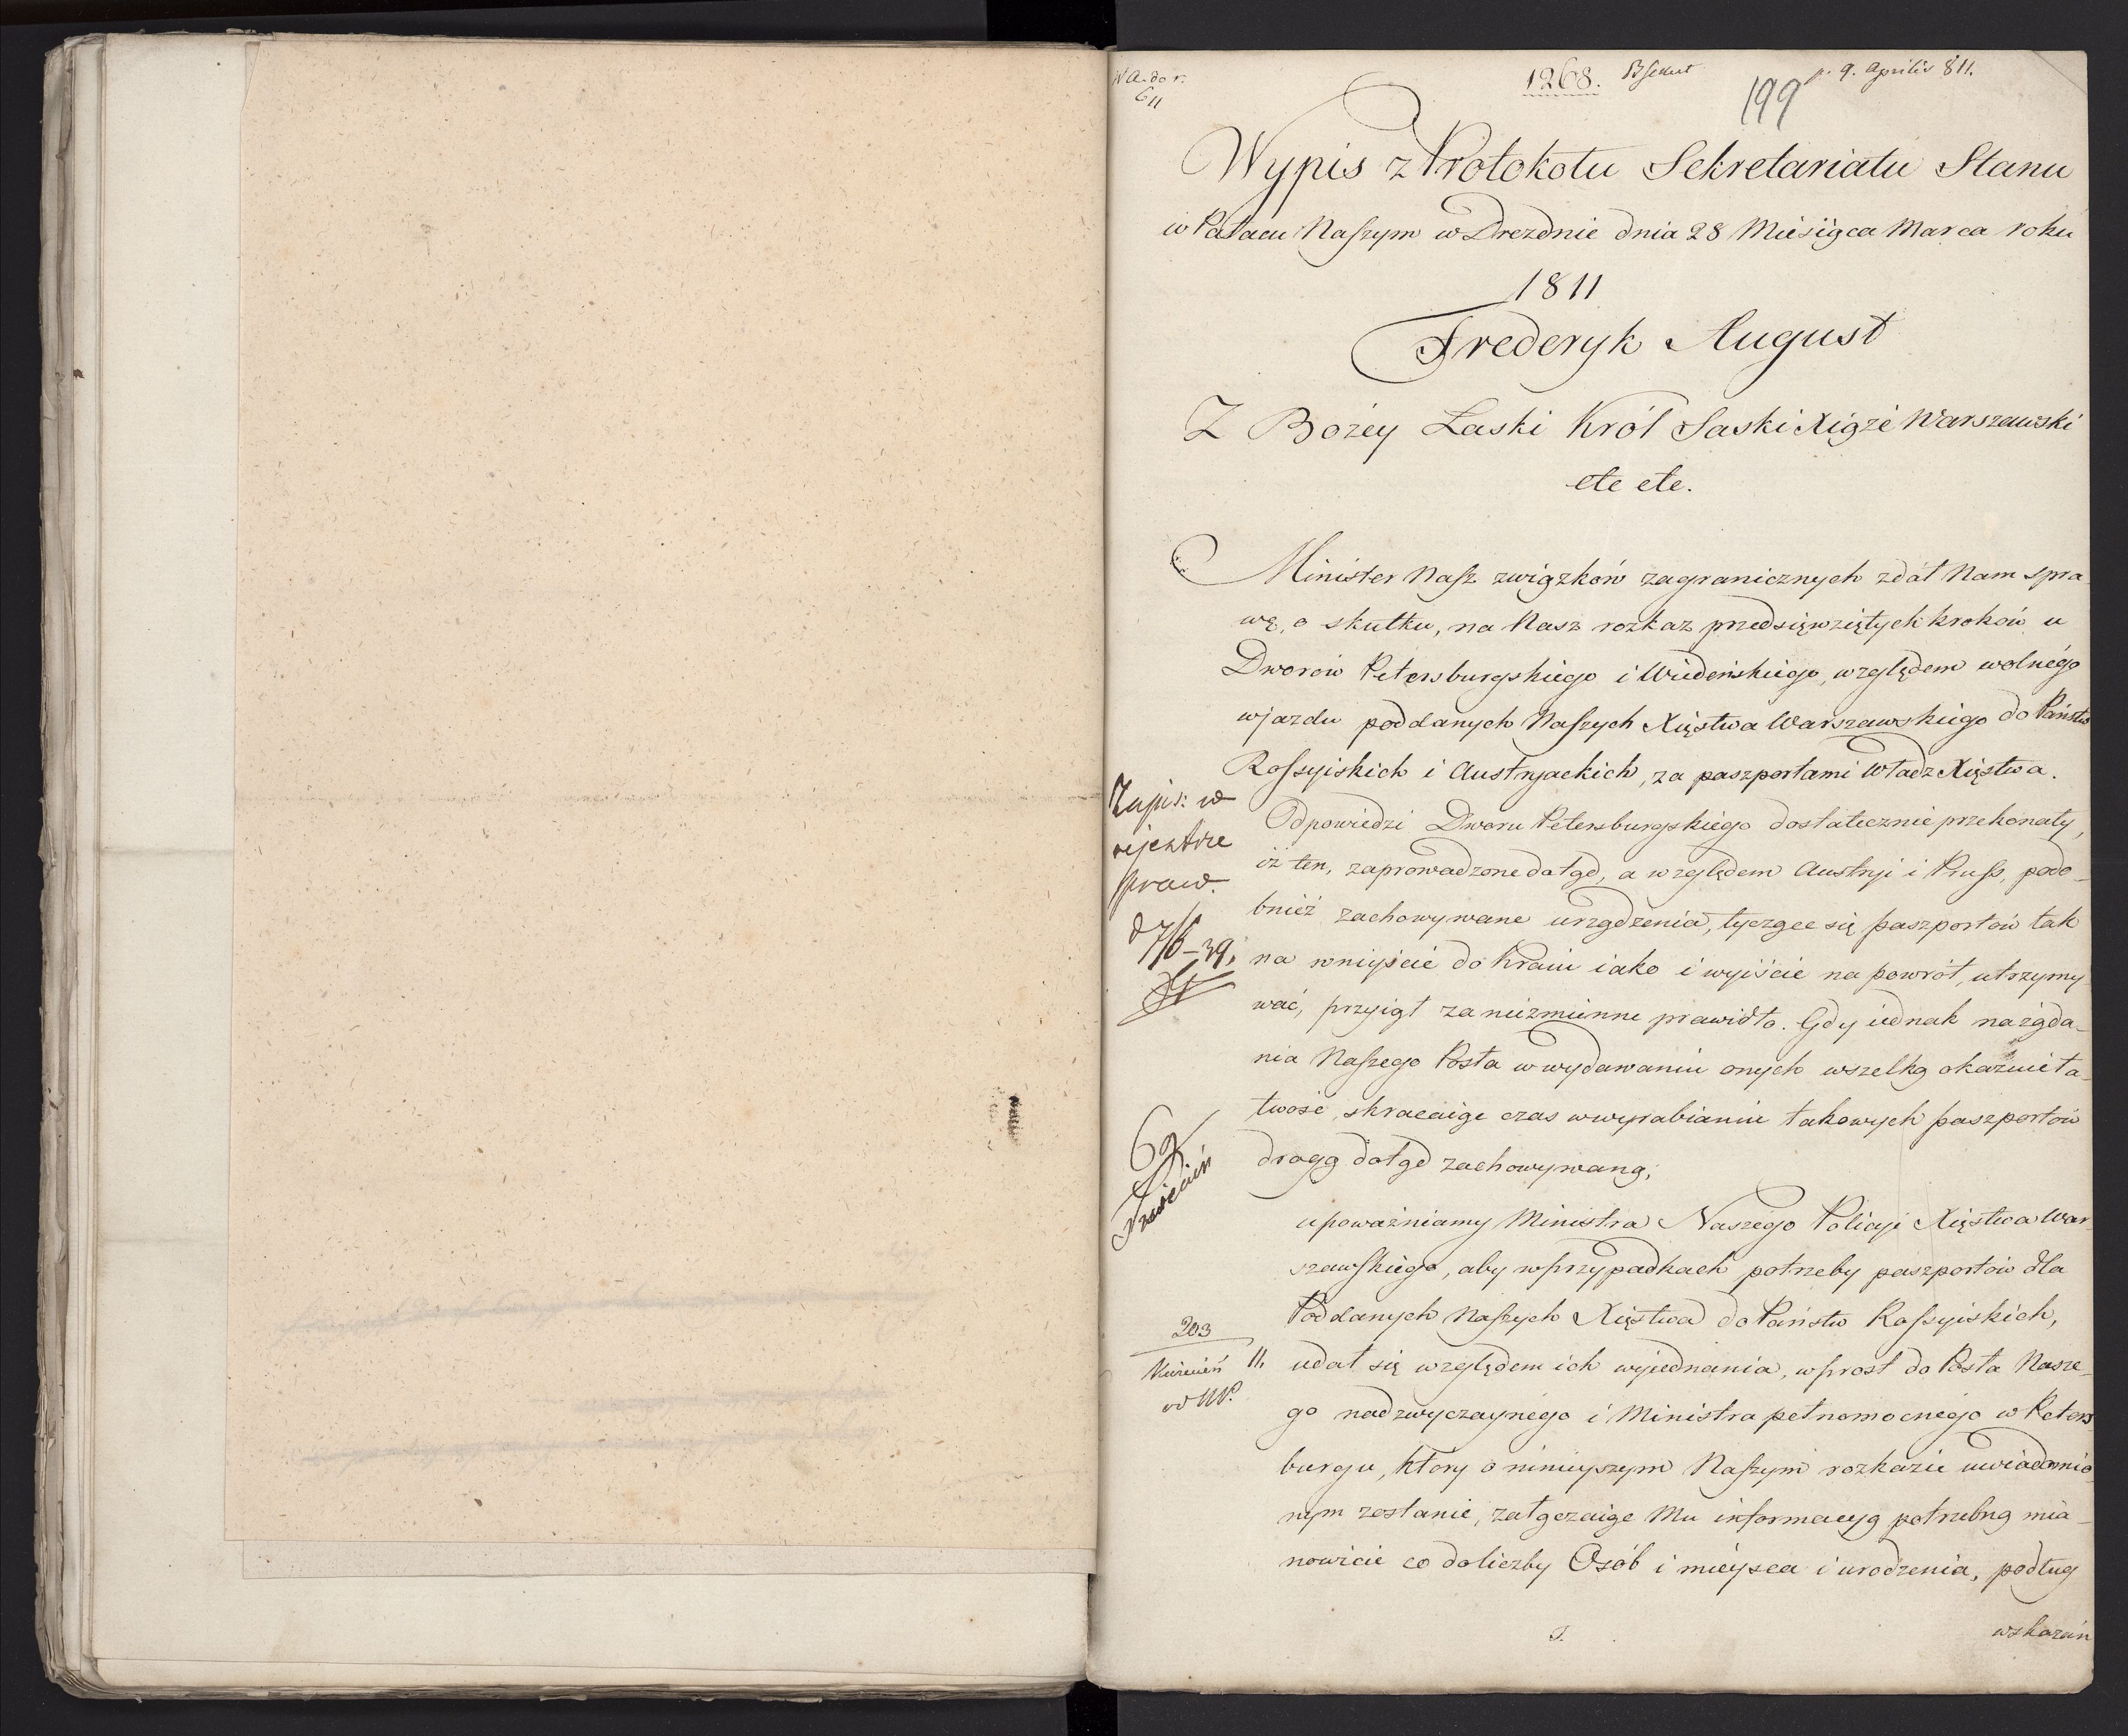 1268.
p. 9. Aprilis 811.
199
Wypis z Protokołu Sekretariatu Stanu
w Pałacu Naszym w Dreznie dnia 28 Miesiąca Marca roku
1811
Frederyk August
Z Bożey Łaski Król Saski Xiąże Warszawski
etc etc.
Minister Nasz związków zagranicznych zdał Nam spra-
wę, o skutku, na Nasz rozkaz przedsięwziętych kroków u
Dworów Petersburgskiego i Wiedeńskiego, względem wolnego
wjazdu poddanych Naszych Xięstwa Warszawskiego do Państw
Rossyiskich i Austryackich, za paszportami Władz Xięstwa.
Odpowiedzi Dworu Petersburgskiego dostatecznie przekonały,
iż ten, zaprowadzone dotąd, a względem Austryi i Pruss, podo-
bnież zachowywane urządzenia, tyczące się paszportów tak
na wniyście do kraiu iako i wyiście na powrót, utrzymy-
wać, przyiął za niezmienne prawidło. Gdy iednak na żąda-
nia Naszego Posła w wydawaniu onych wszelką okazuie ła-
twość, skracaiąc czas w wyrabianiu takowych paszportów
drogą dotąd zachowywaną;
upoważniamy Ministra Naszego Policyi Xięstwa War-
szawskiego, aby w przypadkach potrzeby paszportów dla
Poddanych Naszych Xięstwa do Państw Rossyiskich,
udał się względem ich wyiednania, wprost do Posła Nasze-
go nadzwyczaynego i Ministra pełnomocnego w Peters-
burgu, który o ninieyszym Naszym rozkazie uwiadomio-
nym zostanie, załączaiąc Mu informacyą potrzebną mia-
nowicie co do liczby Osób i mieysca i urodzenia, podług
wskazań
Zapis: w
rejestrze
spraw.
69
Kwiecień
203
Kwiecień 11.